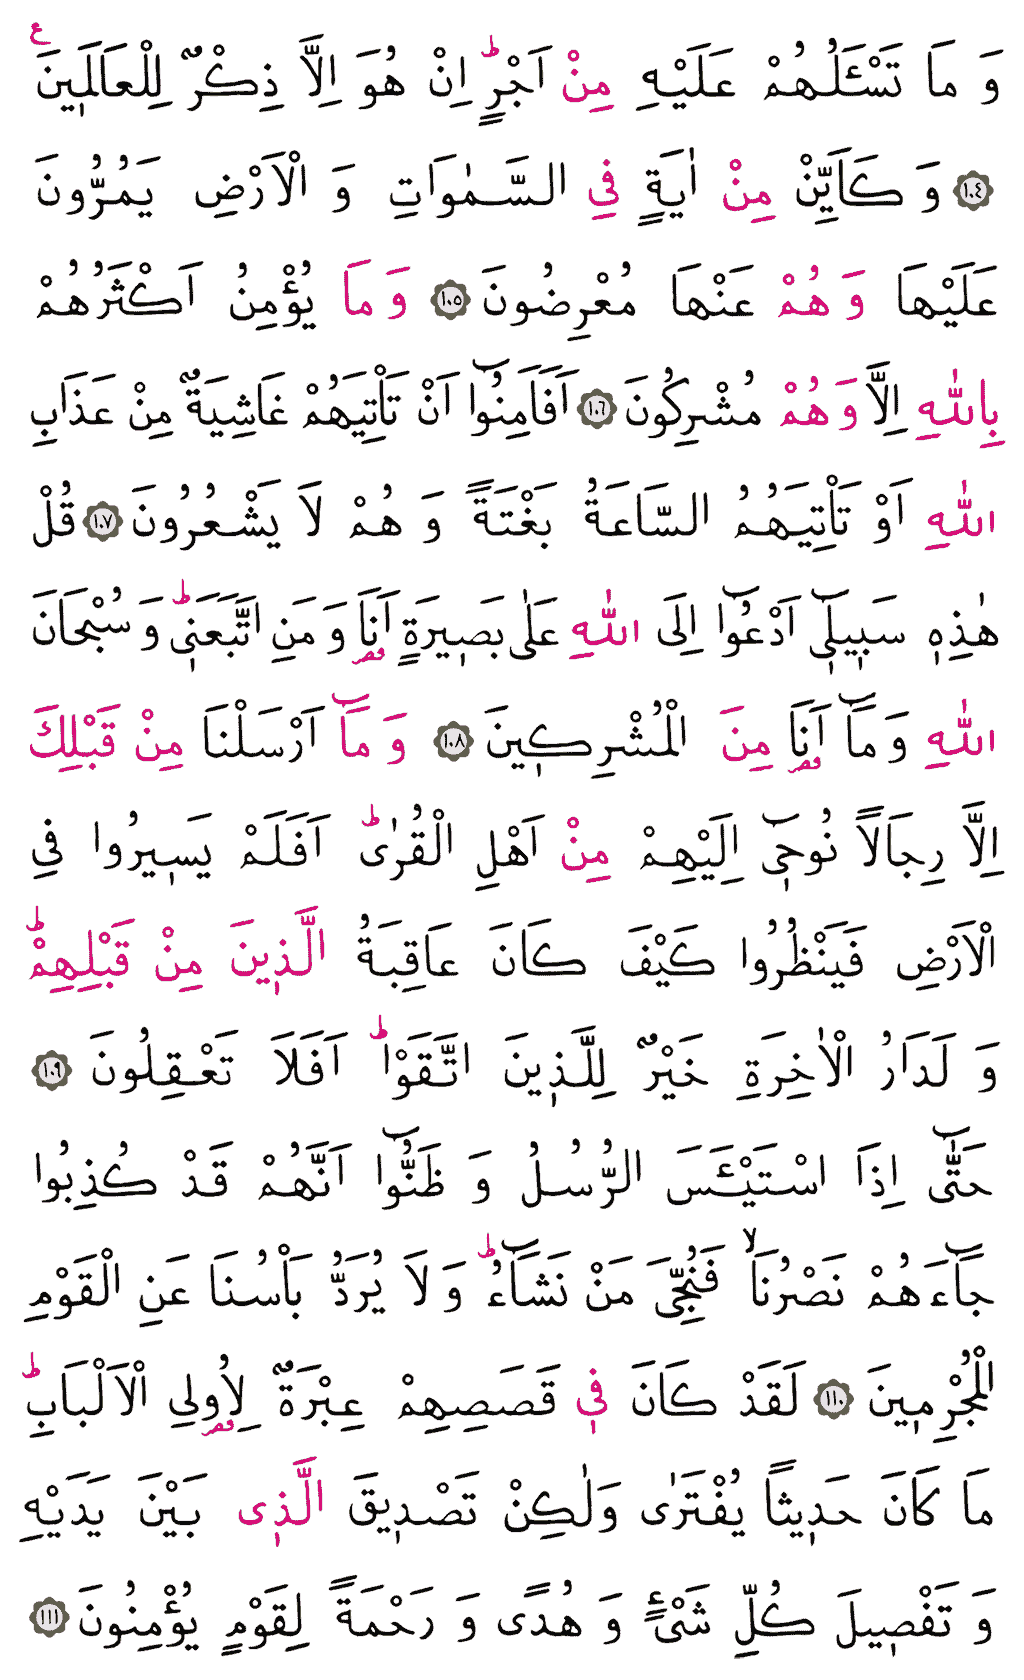 وَ مَا تَسْـَٔلُهُمْ عَلَيْهِ مِنْ اَجْرٍۜ اِنْ هُوَ اِلَّا ذِكْرٌ لِلْعَالَمٖينَ ع
﴿١٠٤﴾ وَ كَاَيِّنْ مِنْ اٰيَةٍ فِي السَّمٰوَاتِ وَ الْاَرْضِ يَمُرُّونَ
عَلَيْهَا وَ هُمْ عَنْهَا مُعْرِضُونَ ﴿١٠٥﴾ وَ مَا يُؤْمِنُ اَكْثَرُهُمْ
بِاللّٰهِ اِلَّا وَ هُمْ مُشْرِكُونَ ﴿١٠٦﴾ اَفَاَمِنُٓوا اَنْ تَاْتِيَهُمْ غَاشِيَةٌ مِنْ عَذَابِ
اللّٰهِ اَوْ تَاْتِيَهُمُ السَّاعَةُ بَغْتَةً وَ هُمْ لَا يَشْعُرُونَ ﴿١٠٧﴾ قُلْ
هٰذِهٖ سَبٖيلٖٓي اَدْعُٓوا اِلَى اللّٰهِ عَلٰى بَصٖيرَةٍ اَنَا۬ وَ مَنِ اتَّبَعَنٖيۜ وَ سُبْحَانَ
اللّٰهِ وَ مَٓا اَنَا۬ مِنَ الْمُشْرِكٖينَ ﴿١٠٨﴾ وَ مَٓا اَرْسَلْنَا مِنْ قَبْلِكَ
اِلَّا رِجَالًا نُوحٖٓي اِلَيْهِمْ مِنْ اَهْلِ الْقُرٰىۜ اَفَلَمْ يَسٖيرُوا فِي
الْاَرْضِ فَيَنْظُرُوا كَيْفَ كَانَ عَاقِبَةُ الَّذٖينَ مِنْ قَبْلِهِمْۜ
وَ لَدَارُ الْاٰخِرَةِ خَيْرٌ لِلَّذٖينَ اتَّقَوْاۜ اَفَلَا تَعْقِلُونَ ﴿١٠٩﴾
حَتّٰٓى اِذَا اسْتَيْـَٔسَ الرُّسُلُ وَ ظَنُّٓوا اَنَّهُمْ قَدْ كُذِبُوا
جَٓاءَهُمْ نَصْرُنَاۙ فَنُجِّيَ مَنْ نَشَٓاءُۜ وَ لَا يُرَدُّ بَاْسُنَا عَنِ الْقَوْمِ
الْمُجْرِمٖينَ ﴿١١٠﴾ لَقَدْ كَانَ فٖي قَصَصِهِمْ عِبْرَةٌ لِاُو۬لِي الْاَلْبَابِۜ
مَا كَانَ حَدٖيثًا يُفْتَرٰى وَلٰكِنْ تَصْدٖيقَ الَّذٖي بَيْنَ يَدَيْهِ
وَ تَفْصٖيلَ كُلِّ شَيْءٍ وَ هُدًى وَ رَحْمَةً لِقَوْمٍ يُؤْمِنُونَ ﴿١١١﴾